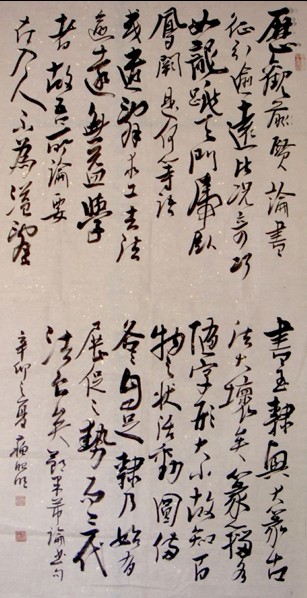 歷觀前賢論書
征引迂遠比況奇巧
如龍跳天門虎臥
鳳闕是何等語
或遣辞求工去法
逾遠無益學
者故吾所論要
在入人不為溢辞
書至隸興大篆古
法大壞矣篆籀各
隨字形大小故知百
物之狀活動圓備
各各自足隸乃始有
展促之勢而三代
法亡矣 米芾論書句
辛卯之夏